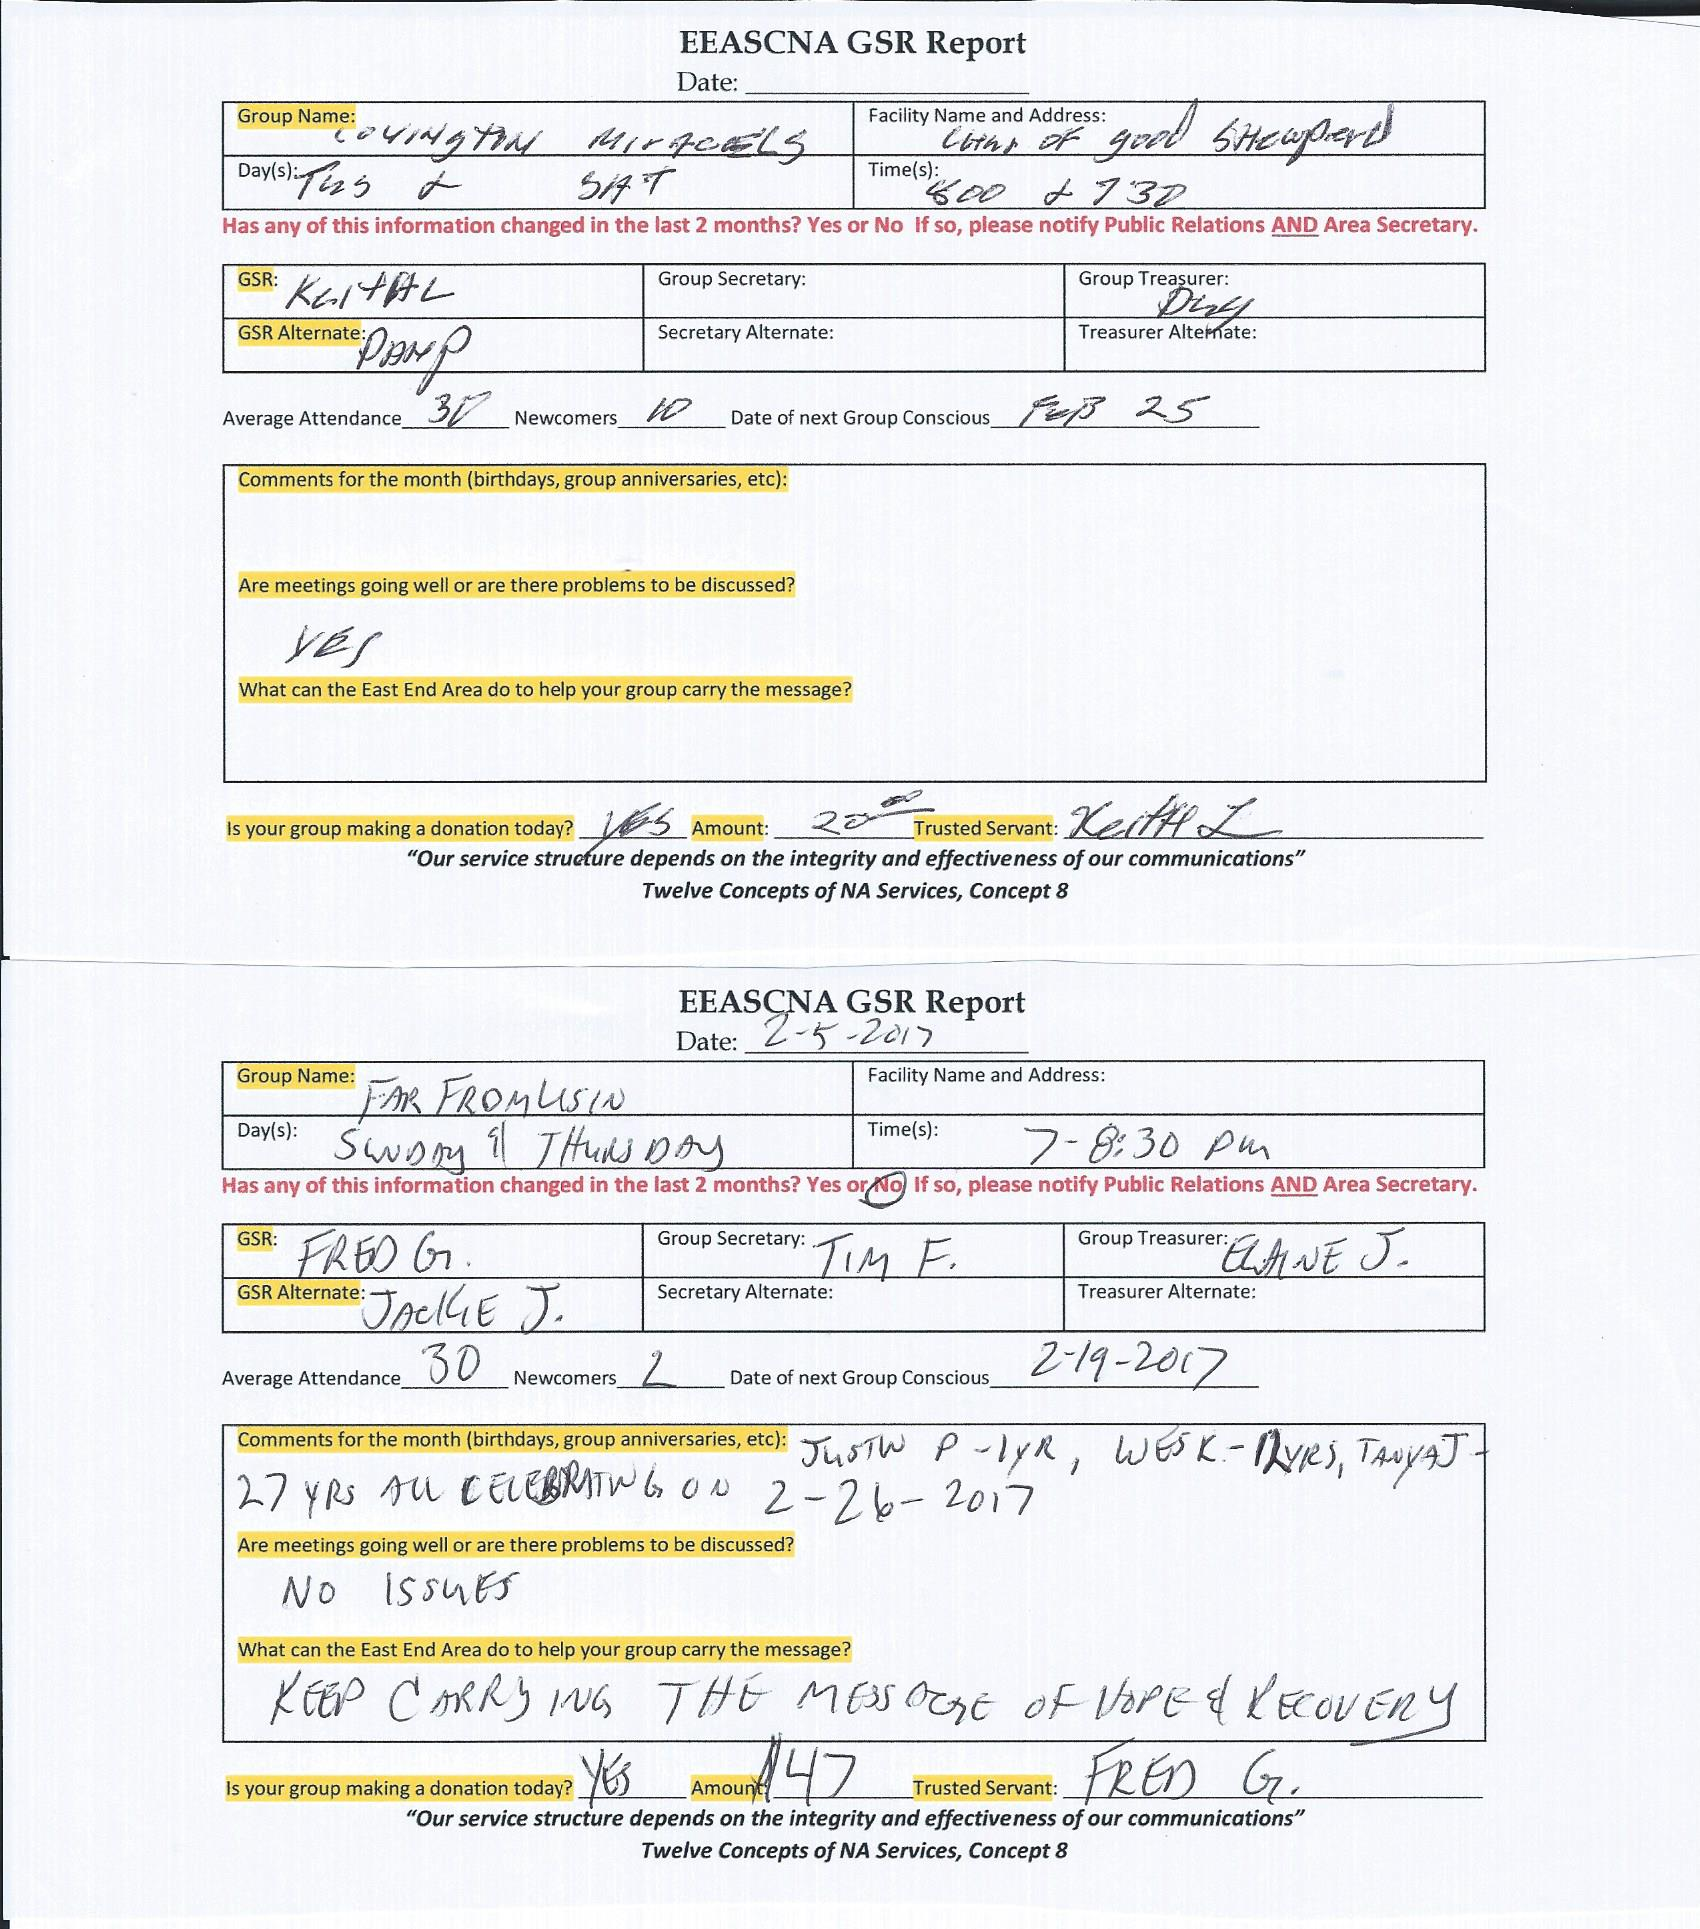 EEASCNA GSR Report
Date:
Group Name: Covington Miracels
Facility Name and Address: of good Shewperd
Day(s): Tus & SAT
Time(s): 800 & 730
Has any of this information changed in the last 2 months? Yes or No If so, please notify Public Relations AND Area Secretary.
GSR: Keith L
Group Secretary:
Group Treasurer:
GSR Alternate: DAN P
Secretary Alternate:
Treasurer Alternate:
Average Attendance 30 Newcomers 10 Date of next Group Conscious Feb 25
Comments for the month (birthdays, group anniversaries, etc):
Are meetings going well or are there problems to be discussed?
YES
What can the East End Area do to help your group carry the message?
Is your group making a donation today? YES Amount: 20 00 Trusted Servant: Keith L
“Our service structure depends on the integrity and effectiveness of our communications”
Twelve Concepts of NA Services, Concept 8
EEASCNA GSR Report
Date: 2-5-2017
Group Name: FAR FROM USIN
Facility Name and Address:
Day(s): SUNDAY & THURSDAY
Time(s): 7-8:30 PM
Has any of this information changed in the last 2 months? Yes or No If so, please notify Public Relations AND Area Secretary.
GSR: FRED G.
Group Secretary: TIM F.
Group Treasurer: ELAINE J.
GSR Alternate: JACKIE J.
Secretary Alternate:
Treasurer Alternate:
Average Attendance 30 Newcomers 2 Date of next Group Conscious 2-19-2017
Comments for the month (birthdays, group anniversaries, etc): JUSTIN P -1YR, WES K.-12YRS, TANYA J-
27 YRS ALL CELEBRATING ON 2-26-2017
Are meetings going well or are there problems to be discussed?
NO ISSUES
What can the East End Area do to help your group carry the message?
KEEP CARRYING THE MESSAGE OF HOPE & RECOVERY
Is your group making a donation today? YES Amount: $47 Trusted Servant: FRED G.
“Our service structure depends on the integrity and effectiveness of our communications”
Twelve Concepts of NA Services, Concept 8